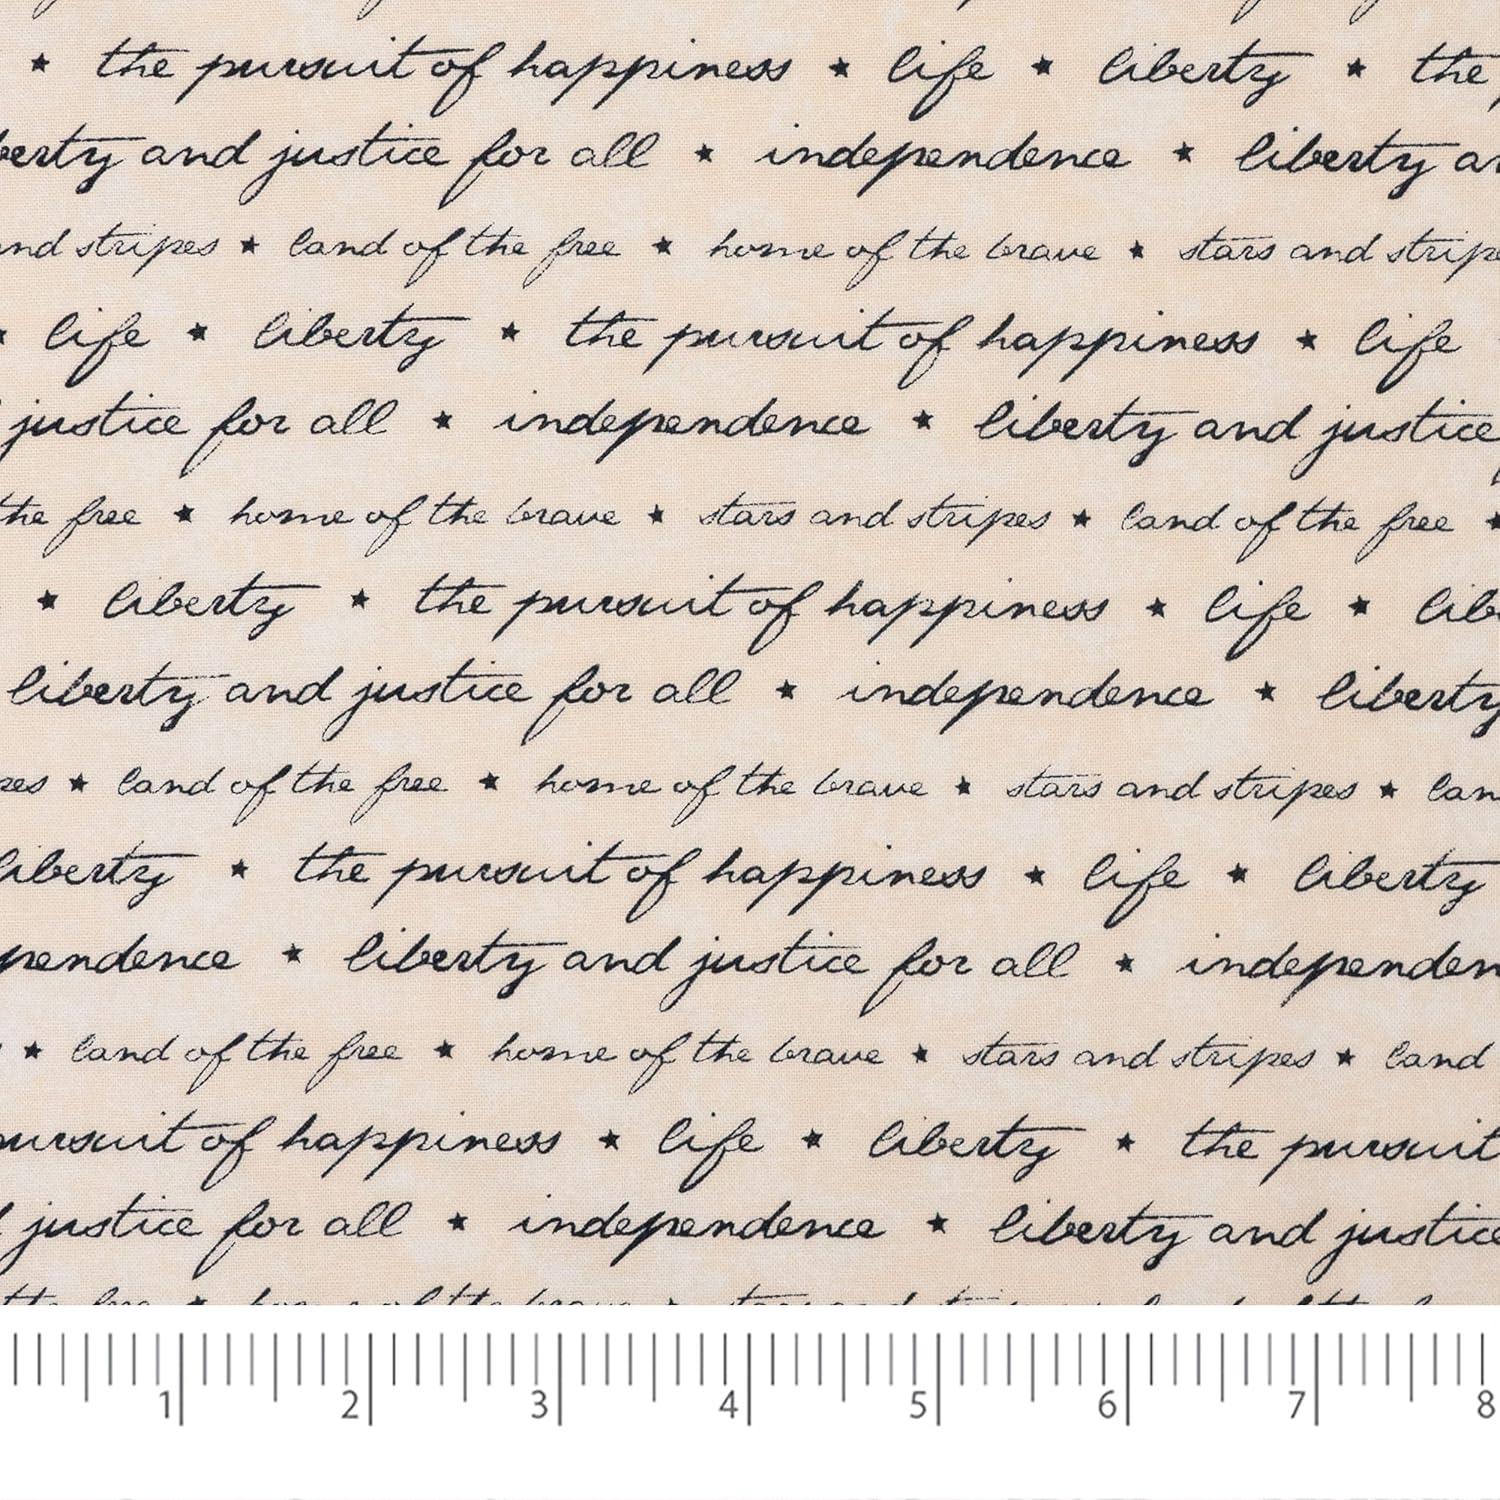 ★ the pursuit of happiness ★ life ★ liberty ★ the
berty and justice for all ★ independence ★ liberty an
nd stripes ★ land of the free ★ home of the brave ★ stars and stripe
★ life ★ liberty ★ the pursuit of happiness ★ life
justice for all ★ independence ★ liberty and justice
the free ★ home of the brave ★ stars and stripes ★ land of the free ★
★ liberty ★ the pursuit of happiness ★ life ★ lib
liberty and justice for all ★ independence ★ liberty
pes ★ land of the free ★ home of the brave ★ stars and stripes ★ lan
liberty ★ the pursuit of happiness ★ life ★ liberty
pendence ★ liberty and justice for all ★ independen
★ land of the free ★ home of the brave ★ stars and stripes ★ land
pursuit of happiness ★ life ★ liberty ★ the pursuit
justice for all ★ independence ★ liberty and justice
the free ★ home of the brave ★ stars and stripes ★ land of the f
1 2 3 4 5 6 7 8